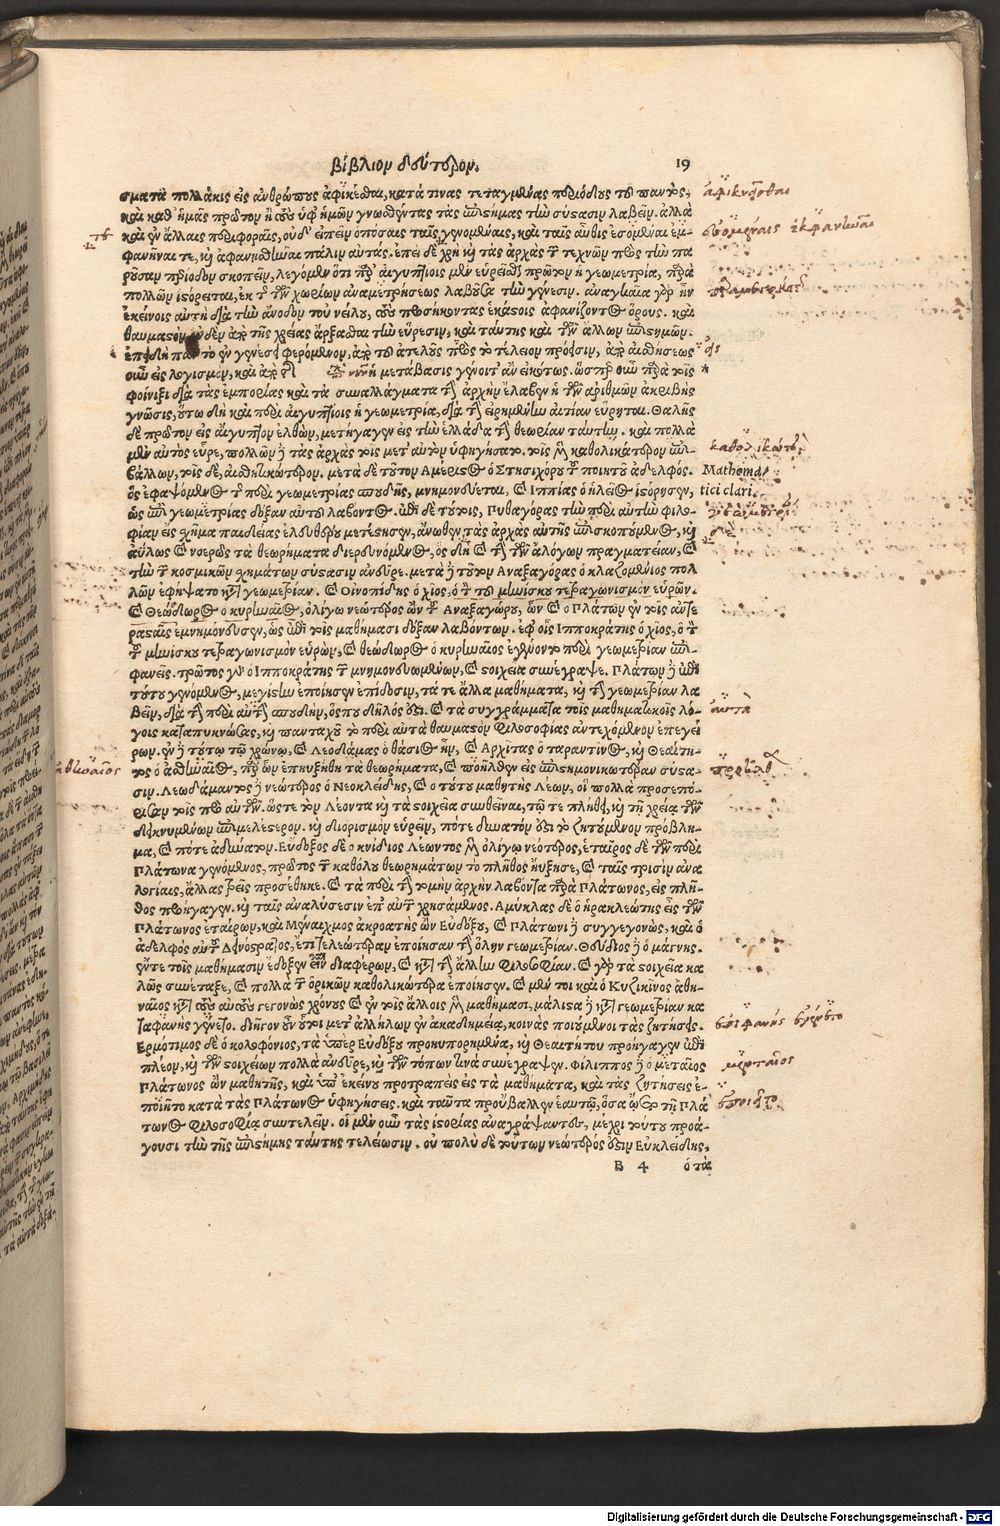 βίβλιον δεύτερον. 19
σματα πολλάκις εἰς ἀνθρώπους ἀφικέσθαι, κατά τινας τεταγμένας περιόδους τοῦ παντὸς,
καὶ καθ' ἡμᾶς πρῶτον ἢ τοὺς ὑφ' ἡμῶν γνωσθέντας τὰς ἐπιστήμας τὴν σύστασιν λαβεῖν. ἀλλὰ
καὶ ἐν ἄλλαις περιφοραῖς, οὐδ' εἰπεῖν ὁπόσαις ταῖς γενομέναις, καὶ ταῖς αὖθις ἐσομέναι ἐμ-
φανῆναί τε, καὶ ἀφανισθῆναι πάλιν αὐτάς. ἐπεὶ δὲ χρὴ καὶ τὰς ἀρχὰς τῶν τεχνῶν πρὸς τὴν πα
ροῦσαν περίοδον σκοπεῖν, λέγομεν ὅτι παρ' αἰγυπτίοις μὲν εὑρεῖσθαι πρῶτον ἡ γεωμετρία, παρὰ
πολλῶν ἱστόρειται, ἐκ τῆς τῶν χωρίων ἀναμετρήσεως λαβοῦσα τὴν γένεσιν. ἀναγκαία γὰρ ἦν
ἐκείνοις αὐτὴ διὰ τὴν ἄνοδον τοῦ νείλου, τοὺς προσήκοντας ἑκάστοις ἀφανίζοντος ὅρους. καὶ
θαυμαστὸν οὐδὲν ἀπὸ τῆς χρείας ἄρξασθαι τὴν εὕρεσιν, καὶ ταύτης καὶ τῶν ἄλλων ἐπιστημῶν.
ἐπειδὴ πᾶν τὸ ἐν γενέσει φερόμενον, ἀπὸ τοῦ ἀτελοῦς πρὸς τὸ τέλειον πρόεισιν, ἀπὸ αἰσθήσεως
οὖν εἰς λογισμὸν, καὶ ἀπὸ ἡ μετάβασις γένοιτ' ἂν εἰκότως. ὥσπερ οὖν παρὰ τοῖς
φοίνιξι διὰ τὰς ἐμπορίας καὶ τὰ συναλλάγματα τὴν ἀρχὴν ἔλαβεν ἡ τῶν ἀριθμῶν ἀκριβὴς
γνῶσις, οὕτω δὴ καὶ παρὰ αἰγυπτίοις ἡ γεωμετρία, διὰ τὴν εἰρημένην αἰτίαν εὕρηται. Θαλῆς
δὲ πρῶτον εἰς αἴγυπτον ἐλθὼν, μετήγαγεν εἰς τὴν ἑλλάδα τὴν θεωρίαν ταύτην. καὶ πολλὰ
μὲν αὐτὸς εὗρε, πολλῶν δὲ τὰς ἀρχὰς τοῖς μετ' αὐτὸν ὑφηγήσατο. τοῖς μὲν καθολικώτερον ἐπι-
βάλλων, τοῖς δὲ, αἰσθητικώτερον. μετὰ δὲ τοῦτον Αμέριστος ὁ Στησιχόρου τοῦ ποιητοῦ ἀδελφός.
ὃς ἐφαψάμενος τῆς περὶ γεωμετρίας σπουδῆς, μνημονεύεται, καὶ Ιππίας ὁ ἠλεῖος ἱστόρησεν,
ὡς ἐπὶ γεωμετρίας δόξαν αὐτοῦ λαβόντος. ἐπὶ δὲ τούτοις, Πυθαγόρας τὴν περὶ αὐτὴν φιλο-
φίαν εἰς σχῆμα παιδείας ἐλευθέρου μετέστησεν, ἄνωθεν τὰς ἀρχὰς αὐτῆς ἐπισκοπούμενος, καὶ
ἀΰλως καὶ νοερῶς τὰ θεωρήματα διερευνόμενος, ὃς δὴ καὶ τὴν τῶν ἀλόγων πραγματείαν, καὶ
τὴν τῶν κοσμικῶν σχημάτων σύστασιν ἀνεῦρε. μετὰ δὲ τοῦτον Αναξαγόρας ὁ κλαζομένιος πολ
λῶν ἐφήψατο κατὰ γεωμετρίαν. καὶ Οἰνοπίδης ὁ χῖος, ὁ τὸν τοῦ μηνίσκου τετραγωνισμὸν εὑρών.
καὶ Θεόδωρος ὁ κυρηναῖος, ὀλίγῳ νεώτερος ὢν τοῦ Αναξαγόρου, ὧν καὶ ὁ Πλάτων ἐν τοῖς ἀντε
ρασταῖς ἐμνημόνευσεν, ὡς ἐπὶ τοῖς μαθήμασι δόξαν λαβόντων. ἐφ' οἷς Ιπποκράτης ὁ χῖος, ὁ τὸν
τοῦ μηνίσκου τετραγωνισμὸν εὑρὼν, καὶ θεόδωρος ὁ κυρηναῖος ἐγένοντο περὶ γεωμετρίαν ἐπι-
φανεῖς. πρῶτος γὰρ ὁ Ιπποκράτης τῶν μνημονευομένων, καὶ στοιχεῖα συνέγραψε. Πλάτων δὲ ἐπὶ
τούτου γενόμενος, μεγίστην ἐποίησεν ἐπίδοσιν, τά τε ἄλλα μαθήματα, καὶ τὴν γεωμετρίαν λα
βεῖν, διὰ τὴν περὶ αὐτὴν σπουδὴν, ὅς που δῆλός ἐστι. καὶ τὰ συγγράμματα τοῖς μαθηματικοῖς λό-
γοις καταπυκνώσας, καὶ πανταχοῦ τὸ περὶ αὐτὰ θαυμαστὸν φιλοσοφίας ἀντεχόμενον ἐπεγεί
ρων. ἐν δὲ τούτῳ τῷ χρόνῳ, καὶ Λεοδάμας ὁ θάσιος ἦν, καὶ Αρχίτας ὁ ταραντῖνος, καὶ Θεαίτη-
τος ὁ ἀθηναῖος, παρ' ὧν ἐπηυξήθη τὰ θεωρήματα, καὶ προῆλθεν εἰς ἐπιστημονικωτέραν σύστα-
σιν. Λεωδάμαντος δὲ νεώτερος ὁ Νεοκλείδης, καὶ ὁ τούτου μαθητὴς Λέων, οἳ πολλὰ προσεπό-
ρισαν τοῖς πρὸ αὐτῶν. ὥστε τὸν Λέοντα καὶ τὰ στοιχεῖα συνθεῖναι, τῷ τε πλήθει, καὶ τῇ χρείᾳ τῶν
δεικνυμένων ἐπιμελέστερον. καὶ διορισμὸν εὑρεῖν, πότε δυνατόν ἐστι τὸ ζητούμενον πρόβλη-
μα, καὶ πότε ἀδύνατον. Εὔδοξος δὲ ὁ κνίδιος Λέοντος μὲν ὀλίγῳ νεότερος, ἑταῖρος δὲ τῶν περὶ
Πλάτωνα γενόμενος, πρῶτος τῶν καθόλου θεωρημάτων τὸ πλῆθος ηὔξησε, καὶ ταῖς τρισὶν ἀνα
λογίαις, ἄλλας τρεῖς προσέθηκε. καὶ τὰ περὶ τὴν τομὴν ἀρχὴν λαβόντα παρὰ Πλάτωνος, εἰς πλῆ-
θος προήγαγεν. καὶ ταῖς ἀναλύσεσιν ἐπ' αὐτῶν χρησάμενος. Αμύκλας δὲ ὁ ἡρακλεώτης εἷς τῶν
Πλάτωνος ἑταίρων, καὶ Μέναιχμος ἀκροατὴς ὢν Εὐδόξου, καὶ Πλάτωνι δὲ συγγεγονὼς, καὶ ὁ
ἀδελφὸς αὐτοῦ Δεινόστρατος, ἔτι τελεώτεραν ἐποίησαν τὴν ὅλην γεωμετρίαν. Θεύδιος δὲ ὁ μάγνης.
ἔντε τοῖς μαθήμασιν ἔδοξεν εἶναι διαφέρων, καὶ κατὰ τὴν ἄλλην φιλοσοφίαν. καὶ γὰρ τὰ στοιχεῖα κα
λῶς συνέταξε, καὶ πολλὰ τῶν ὁρικῶν καθολικώτερα ἐποίησεν. καὶ μέν τοι καὶ ὁ Κυζικῖνος ἀθη-
ναῖος κατὰ τοὺς αὐτοὺς γεγονὼς χρόνους καὶ ἐν τοῖς ἄλλοις μὲν μαθήμασι, μάλιστα δὲ κατὰ γεωμετρίαν κα
ταφανὴς ἐγένετο. διῆγον οὖν οὗτοι μετ' ἀλλήλων ἐν ἀκαδημείᾳ, κοινὰς ποιούμενοι τὰς ζητήσεις.
Ερμότιμος δὲ ὁ κολοφόνιος, τὰ ὑπὲρ Εὐδόξου προηυπορημένα, καὶ Θεαιτήτου προήγαγεν ἐπὶ
πλέον, καὶ τῶν στοιχείων πολλὰ ἀνεῦρε, καὶ τῶν τόπων τινὰ συνέγραψεν. Φίλιππος δὲ ὁ μεταῖος
Πλάτωνος ὢν μαθητὴς, καὶ ὑπ' ἐκείνου προτραπεὶς εἰς τὰ μαθήματα, καὶ τὰς ζητήσεις ἐ-
ποίητο κατὰ τὰς Πλάτωνος ὑφηγήσεις. καὶ ταῦτα προὔβαλλεν ἑαυτῷ, ὅσα ᾤετο τῇ Πλά
τωνος φιλοσοφίᾳ συντελεῖν. οἱ μὲν οὖν τὰς ἱστορίας ἀναγράψαντες, μέχρι τούτου προά-
γουσι τὴν τῆς ἐπιστήμης ταύτης τελείωσιν. οὐ πολὺ δὲ τούτων νεώτερός ἐστιν Εὐκλείδης,
B 4 ὁ τὰ
ἀφικνεῖσθαι
καθολικώτε
Mathema-
tici clari.
ἀθηναῖος
ἐπιφανὴς ἐγένετο
μενταῖος
ἐποιεῖτο
Digitalisierung gefördert durch die Deutsche Forschungsgemeinschaft - DFG